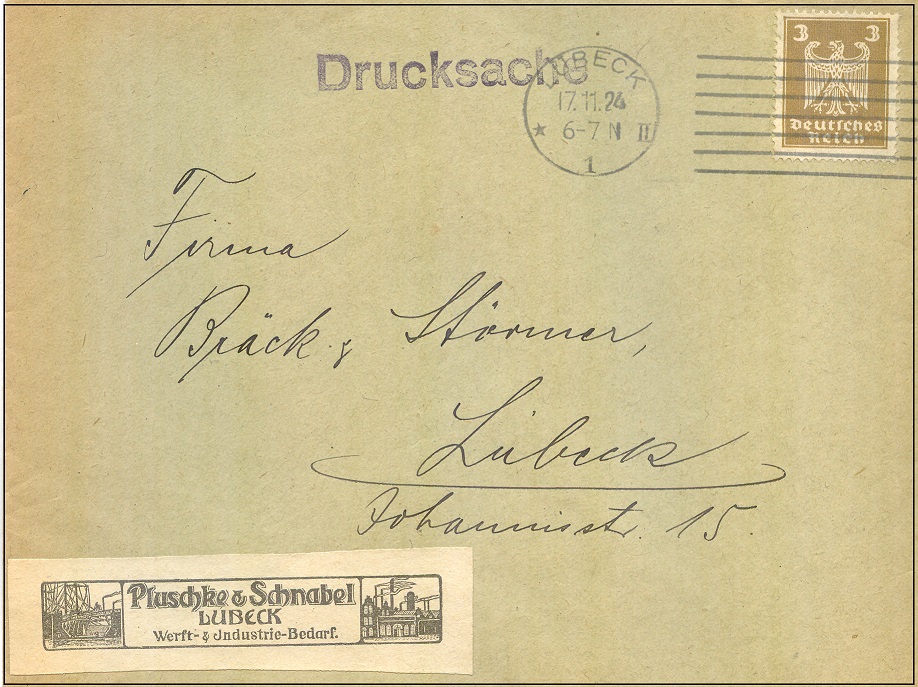 Drucksache
LÜBECK
17.11.24
★ 6-7 N II
1
3 3
Deutsches
Reich
Firma
Bräck & Störmer,
Lübeck
Johannisstr. 15.
Pfuschke & Schnabel
LÜBECK
Werft- & Industrie-Bedarf.